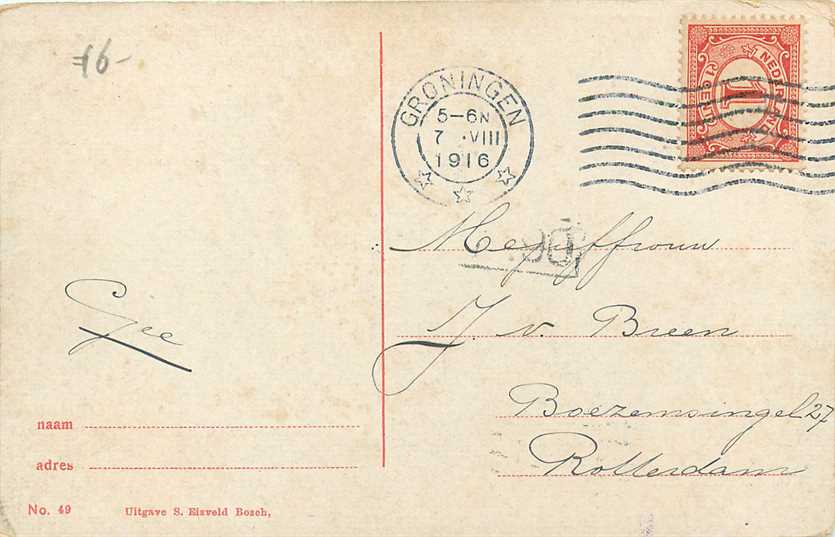 =16-
GRONINGEN
5-6N
7 .VIII
1916
NEDERLAND
1 CENT
1
Mejuffrouw
J. v. Breen
Boezemsingel 27
Rotterdam
Gee
naam
adres
No. 49 Uitgave S. Eisveld Bosch,